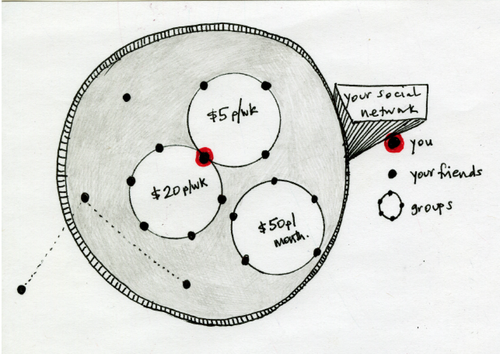 $5 p/wk
$20 p/wk
$50 p/
month.
your social
network
you
your friends
groups